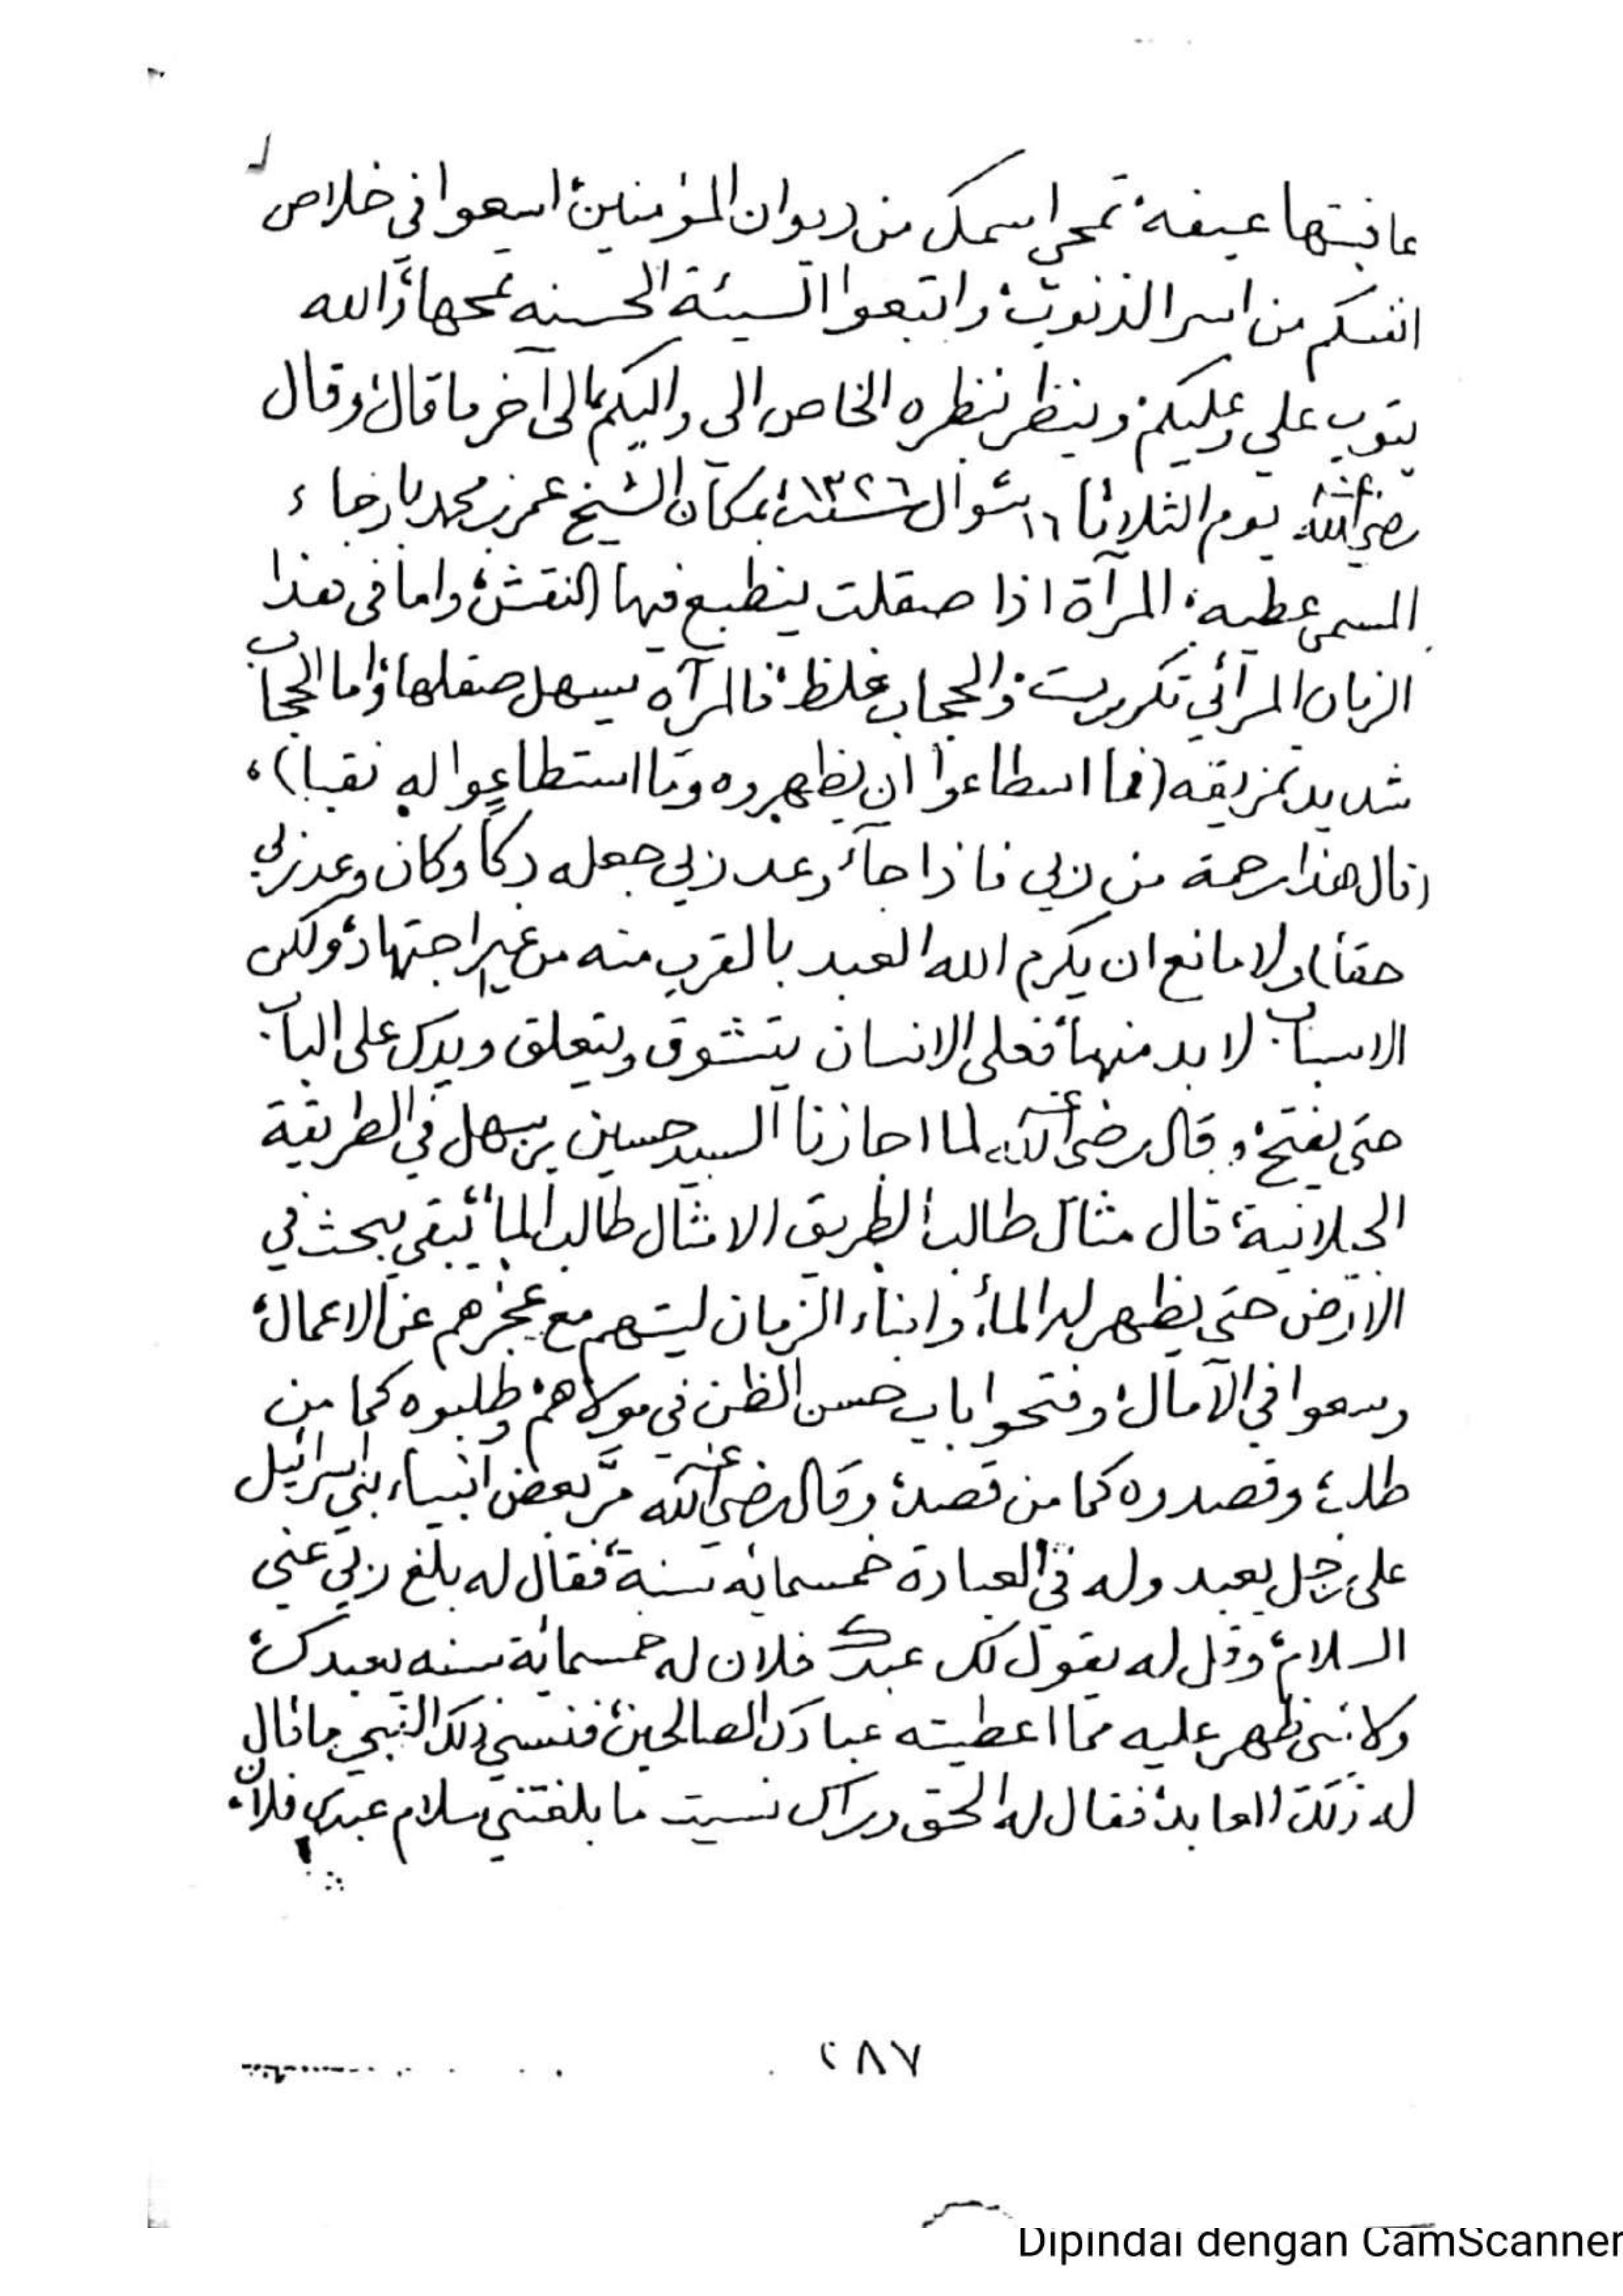 عاقبتها عيفه، تمحي اسمك من ديوان المؤمنين، اسعوا في خلاص
انفسكم من اسر الذنوب، واتبعوا السيئة الحسنه تمحها، والله
يتوب علي وعليكم، وينظر بنظره الخاص الي واليكم، الى آخر ما قال، وقال
رضي الله عنه يوم الثلاثا ١٦ شوال سنة ١٣٢٦ بمكان الشيخ عمر بن محمد بارجاء
المسمى عطيه، المرآة اذا صقلت ينطبع فيها النقش، واما في هذا
الزمان المرائي تكربرت، والحجاب غلظ، فالمرآه يسهل صقلها، واما الحجاب
شديد تمزيقه (فما اسطاعوا ان يظهروه وما استطاعوا له نقبا)،
(قال هذا رحمة من ربي فاذا جاء وعد ربي جعله دكا وكان وعد ربي
حقا) ولا مانع ان يكرم الله العبد بالقرب منه من غير اجتهاد، ولكن
الاسباب لا بد منها، فعلى الانسان يتشوق ويتعلق ويدك على الباب
حتى يفتح، وقال رضي الله عنه لما اجازنا السيد حسين بن سهل في الطريقة
الجيلانية، قال مثال طالب الطريق الا مثال طالب الماء يبقى يبحث في
الارض حتى يظهر له الماء، وابناء الزمان ليتهم مع عجزهم عن الاعمال،
وسعوا في الآمال، وفتحوا باب حسن الظن في مولاهم، وطلبوه كما من
طلب، وقصدوه كما من قصد، وقال رضي الله عنه مر بعض انبياء بني اسرائيل
على رجل يعبد وله في العبادة خمسمائه سنة، فقال له بلغ ربي عني
السلام، وقل له يقول لك عبدك فلان له خمسمائة سنه يعبدك،
ولا شي ظهر عليه مما اعطيته عبادك الصالحين، فنسي ذلك النبي ما قال
له ذلك العابد، فقال له الحق وراك نسيت ما بلغتني سلام عبدي فلان
٢٨٧
Dipindai dengan CamScanner